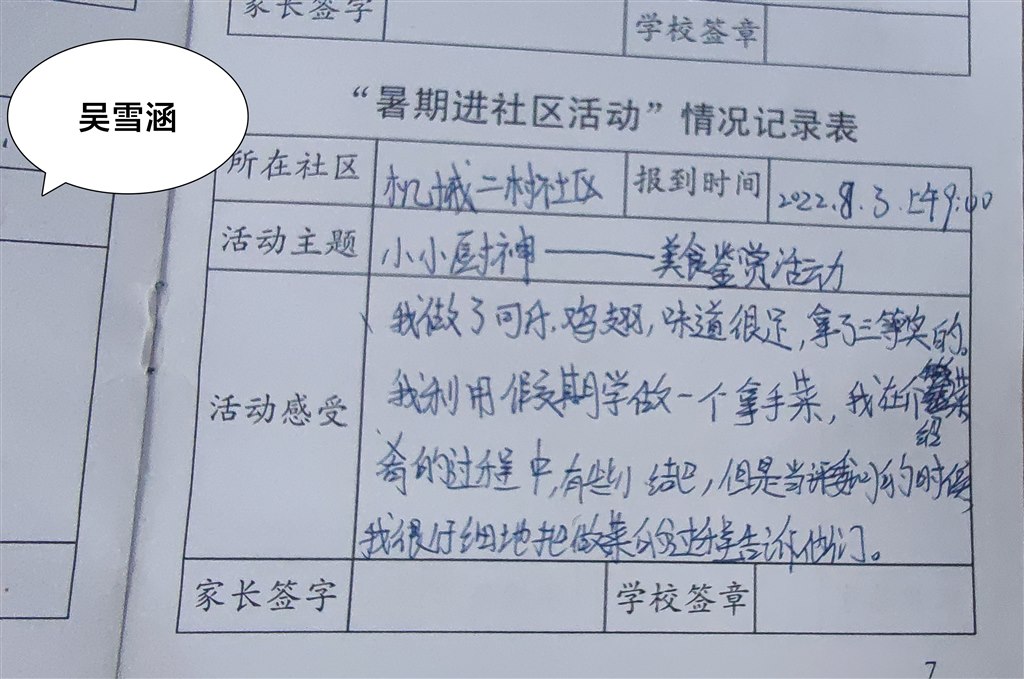 家长签字 学校签章
吴雪涵
“暑期进社区活动”情况记录表
所在社区 机械二村社区 报到时间 2022.8.3.上午9:00
活动主题 小小厨神———美食鉴赏活动
我做了可乐鸡翅,味道很足,拿了三等奖的。
我利用假期学做一个拿手菜,我在介绍菜
活动感受
肴的过程中,有些小结巴,但是当评委问我的时候
我很仔细地把做菜的过程告诉他们。
家长签字 学校签章
7